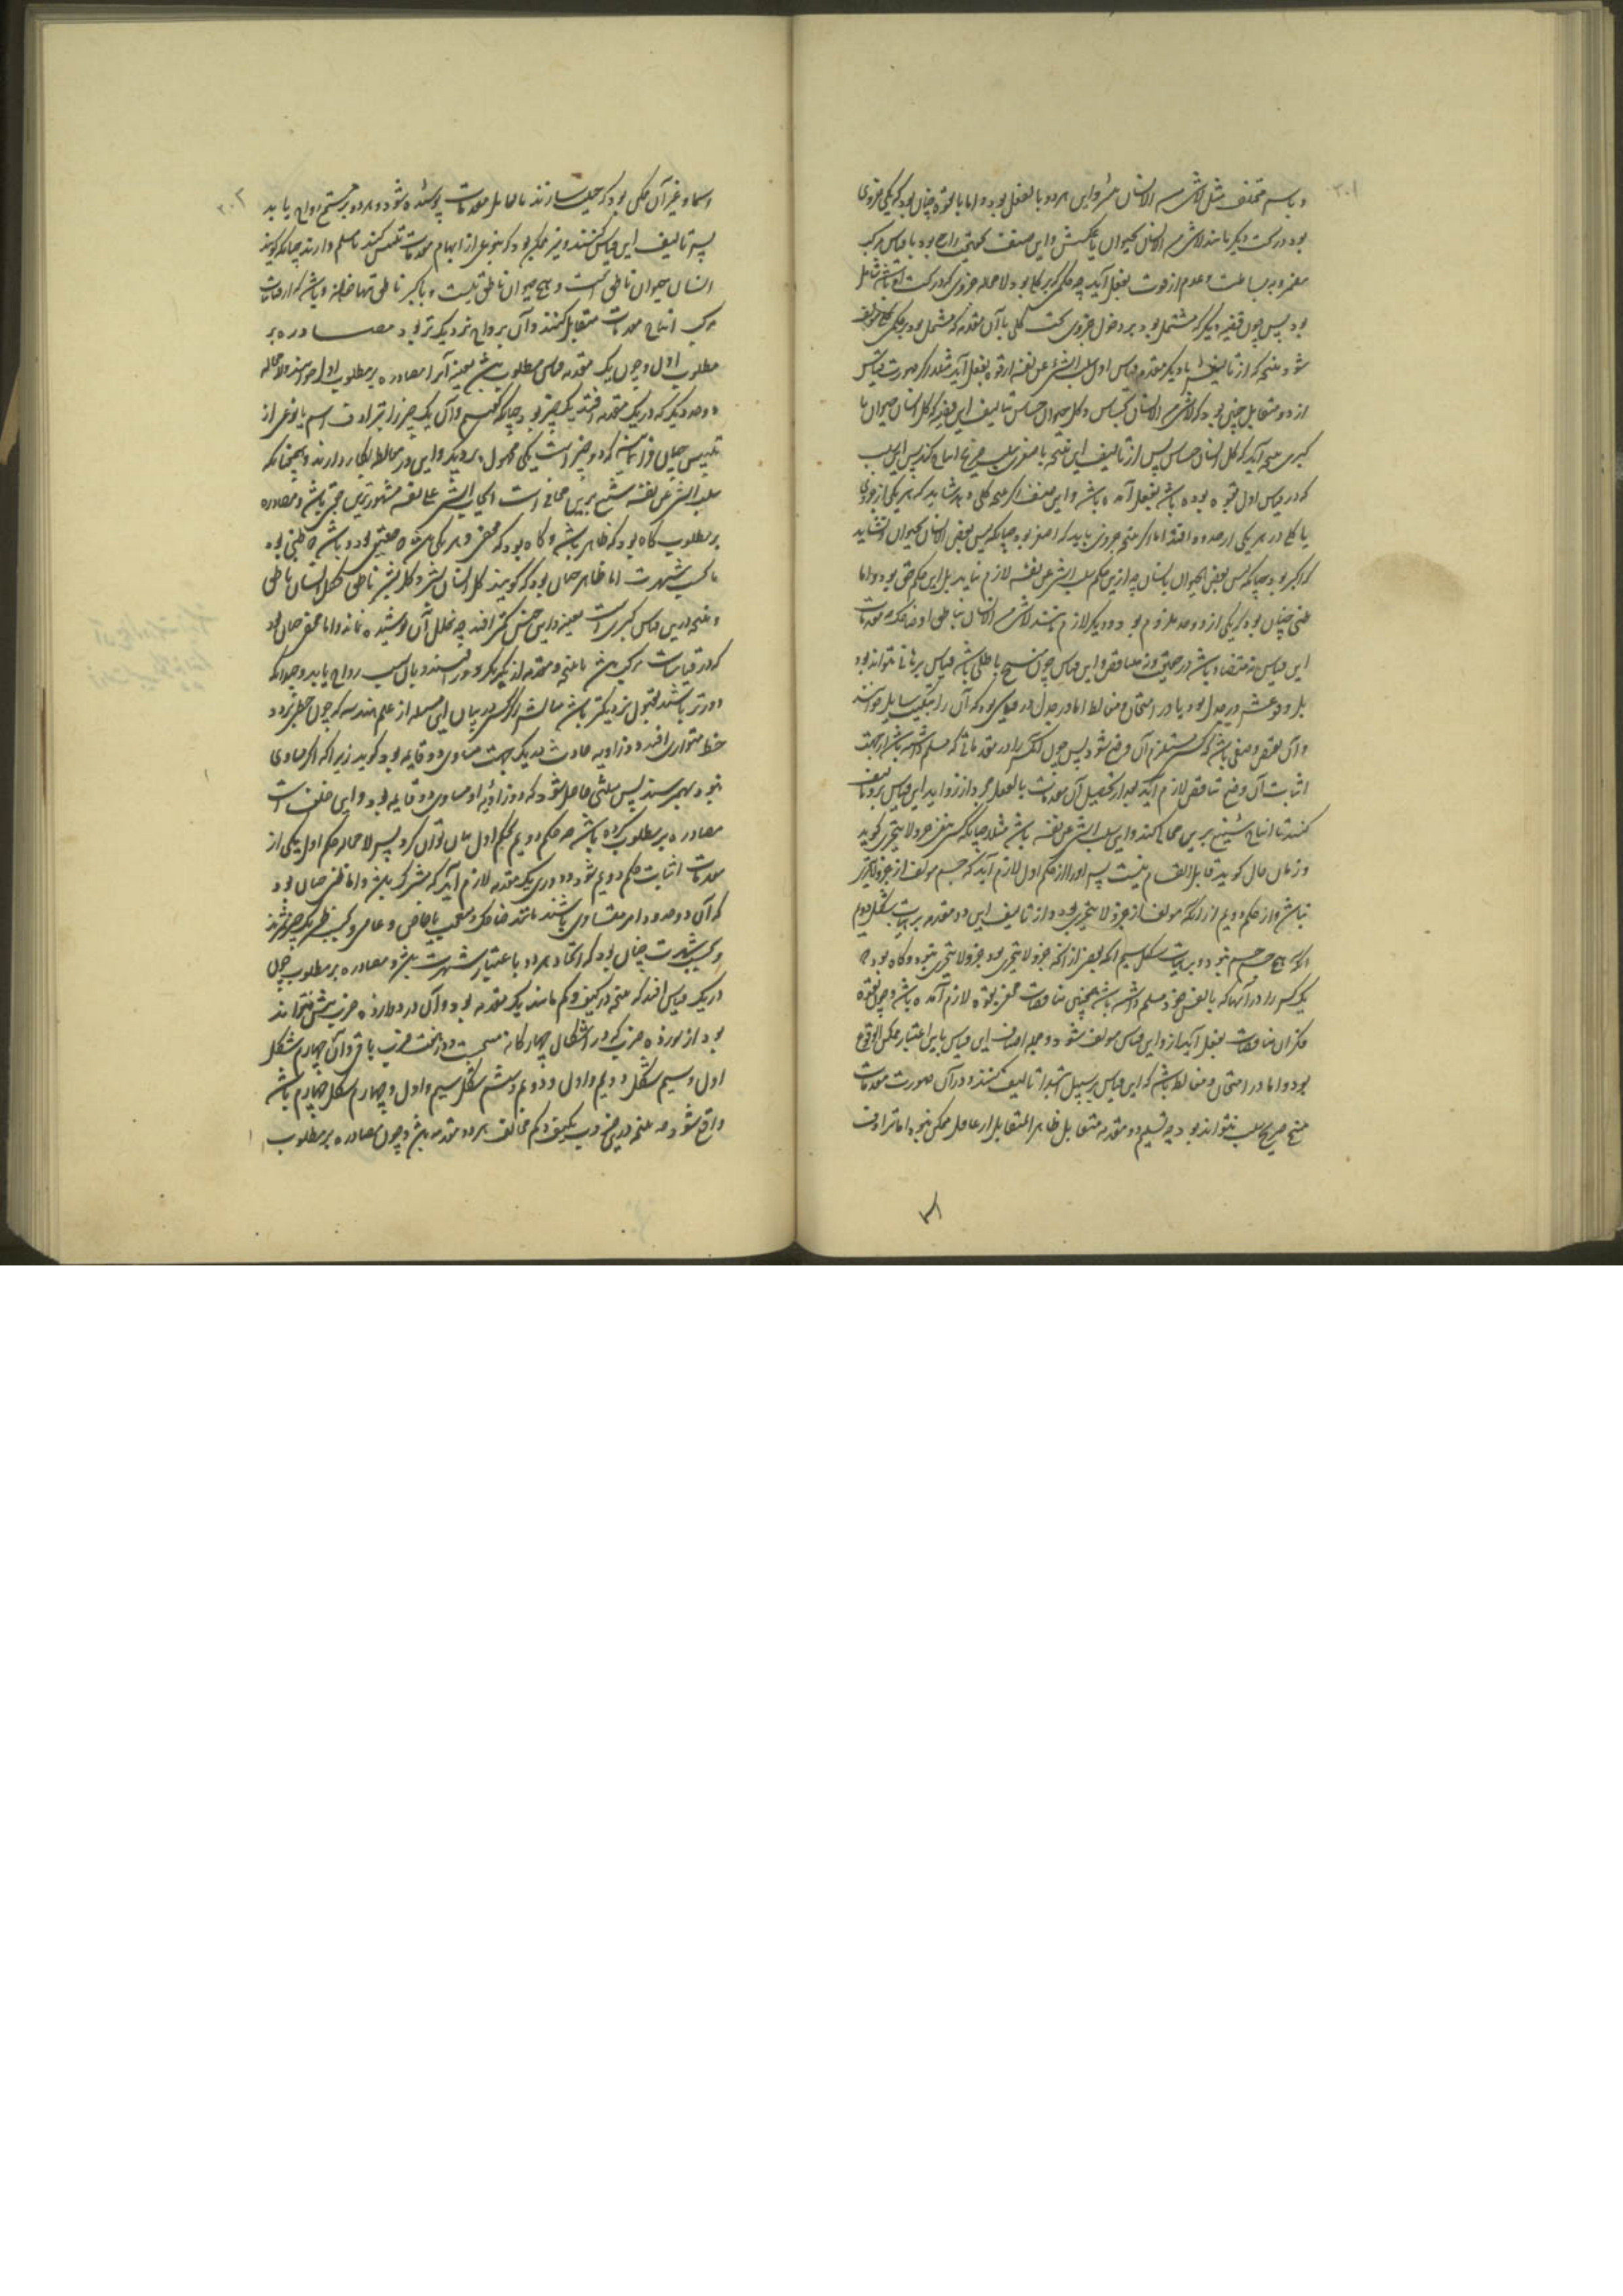 ۳۰۱
و باسم مختلف مثل لاشیء من الانسان بشر و این هر دو بالفعل بود و اما بالقوه چنان بود که یکی جزوی
بود در تحت دیگر مانند لاشیء من الانسان بحیوان یا عکسش و این صنف
بود پس چون قضیه دیگر که مشتمل بود بر دخول جزوی تحت کلی با آن مقدمه که مشتمل بود بر حکم
شود نتیجه که از تالیف با دیگر مقدمه قیاس اول سلب الشیء عن نفسه از قوه بفعل آید مثلا در صورت قیاس
از دو متقابل چنین بود که لاشیء من الانسان بحساس و کل حیوان حساس تالیف این قضیه که کل انسان حیوان با
کبری نتیجه آید که کل انسان حساس پس از تالیف این نتیجه با صغری سلب
که در قیاس اول بقوه بوده باشد بفعل آمده باشد و این صنف اگر نتیجه کلی دهد شاید که هر یکی از جزوی
یا کلی در هر یکی از حدود افتد اما اگر نتیجه جزوی باید که اصغر بود چنانکه لیس بعض الانسان بحیوان و نشاید
که اکبر بود چنانکه لیس بعض الحیوان بانسان چه ازین حکم سلب الشیء عن نفسه لازم نیاید بل این حکم حق بود و اما
ظنی چنان بود که یکی از دو حد ملزوم بود و دیگر لازم مانند لاشیء من الانسان بناطق او ضاحک و مقدمات
این قیاس نه متضاد باشد در حقیقت و نه متناقض و این قیاس چون منتج باطلی باشد قیاس برهانی نتواند بود
بل وقوعش در جدل بود یا در امتحان و مغالطه اما در جدل در قیاسی بود که آن را تبکیت سایل خوانند
و آن نقض وضعی باشد که مستلزم آن وضع شود پس چون آنکس را در مقدماتی که مسلم داشته باشد از جهت
اثبات آن وضع تناقض لازم آید بعد از تحصیل آن مقدمات بالفعل مجرد از زواید این قیاس برو تالیف
کنند تا انتاج شنیع بر بین محال کند و این سلب الشیء عن نفسه باشد مثلا چنانکه کسی بنفی جزو لایتجزی گوید
و زمان حال گوید قابل انقسام نیست پس او را از حکم اول لازم آید که جسم مولف از جزو لایتجزی
نباشد و از حکم دویم از آنکه مولف از جزو لایتجزی بود و از تالیف این دو مقدمه بر هیات شکل دویم
آنکه هیچ جسم جسم نبود و بر هیات شکل سیم آنکه بعضی از آنچه جزو لایتجزی بود جزو لایتجزی نبود و گاه بود که
یک کس را در آنها که بالفعل خود مسلم داشته باشد همچنین متناقضات مضمر بقوه لازم آمده باشد و چون بقوه
فکر آن متناقضات بفعل آید از و این قیاس مولف شود و جمله اصناف این قیاس باین اعتبار ممکن الوقوع
بود و اما در امتحان و مغالطه باشد که این قیاس بر سبیل ابتدا تالیف کنند و در آن صورت مقدمات
منتج صریح سلب نتواند بود چه تسلیم دو مقدمه متقابل ظاهر التقابل از عاقل ممکن نبود اما ترادف
۳۰۲
اسماء و غیر آن ممکن بود که حیلت سازند تا تقابل مقدمات پوشیده شود و هر دو بر مستمع رواج یابد
پس تالیف این قیاس کنند و نیز ممکن بود که بنوعی از ابهام مقدمات تلبیس کنند تا مسلم دارند چنانکه گویند
انسان حیوان ناطق است و هیچ حیوان ناطق نیست
مرکب انتاج مقدمات متقابل کنند و آن برواج نزدیک‌تر بود مصادره بر
مطلوب اول و چون یک مقدمه قیاس مطلوب باشد بعینه آنرا مصادره بر مطلوب اول خوانند و لامحاله
دو حد دیگر که در یک مقدمه افتد یک چیز بود چنانکه گفتیم و آن یک چیز را بترادف اسم یا نوعی از
تلبیس چنان فرا نمایند که دو چیز است یکی محمول بر دیگر و این در مغالطه بکار دارند و همچنانکه
سلب الشیء عن نفسه شنیع‌ترین محالی است ایجاب الشیء علی نفسه مشهورترین حقی باشد و مصادره
بر مطلوب گاه بود که ظاهر باشد و گاه بود که مخفی و هر یکی
یا بحسب شهرت اما ظاهر چنان بود که گویند کل انسان بشر و کل بشر ناطق فکل انسان ناطق
و نتیجه درین قیاس کبری است بعینه و این جنس کمتر افتد چه خلل آن پوشیده نماند و اما مخفی چنان بود
که در قیاسات مرکب باشد تا نتیجه و مقدمه از یکدیگر دور افتند و بآن سبب رواج یابد و چندانکه
دورتر باشند بقبول نزدیکتر باشد مثالش اگر کسی در بیان این مسئله از علم هندسه که چون خطی بر دو
خط متوازی افتد دو زاویه حادث در یک جهت مساوی دو قایمه بود گوید زیرا که اگر مساوی
نبود بهم رسند پس مثلثی حاصل شود که دو زاویه او مساوی دو قایمه بود و این خلف است
مصادره بر مطلوب کرده باشد چه حکم دویم بحکم اول بیان توان کرد پس لامحاله حکم اول یکی از
مقدمات اثبات حکم دویم شود و دوری یک مقدمه لازم آید که مشترک باشد و اما ظنی چنان بود
که آن دو حد دو امر متساوی باشند مانند ضاحک و متعجب یا خاص و عام و بحسب ظن یک چیز شمرند
و بحسب شهرت چنان بود که اتحاد هر دو باعتبار شهرت باشد و مصادره بر مطلوب چون
در یک قیاس افتد که نتیجه در کیف و کم مانند یک مقدمه بود و آن در دوازده ضرب بیش نتواند
بود از نوزده ضرب که در اشکال چهارگانه منتج است و در هفت ضرب باقی و آن چهارم شکل
اول و سیم شکل دویم و اول و دویم و ششم شکل سیم و اول و چهارم شکل چهارم باشد
واقع نشود چه نتیجه درین ضروب بکیف و کم مخالف هر دو مقدمه باشد و چون مصادره بر مطلوب